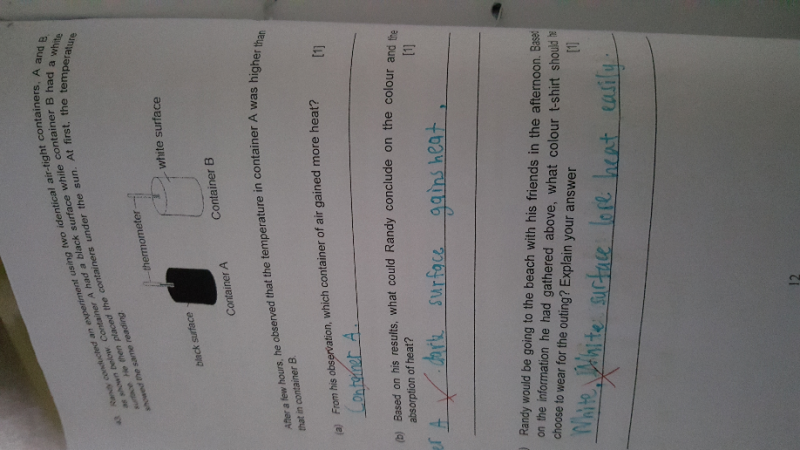 Randy conducted an experiment using two identical air-tight containers, A and B,
as shown below. Container A had a black surface while container B had a white
surface. He then placed the containers under the sun. At first, the temperature
showed the same reading.
thermometer
black surface
white surface
Container A
Container B
After a few hours, he observed that the temperature in container A was higher than
that in container B.
(a) From his observation, which container of air gained more heat? [1]
Container A.
(b) Based on his results, what could Randy conclude on the colour and the
absorption of heat? [1]
er A dark surface gains heat.
) Randy would be going to the beach with his friends in the afternoon. Based
on the information he had gathered above, what colour t-shirt should he
choose to wear for the outing? Explain your answer [1]
White, White surface lore heat easily.
12